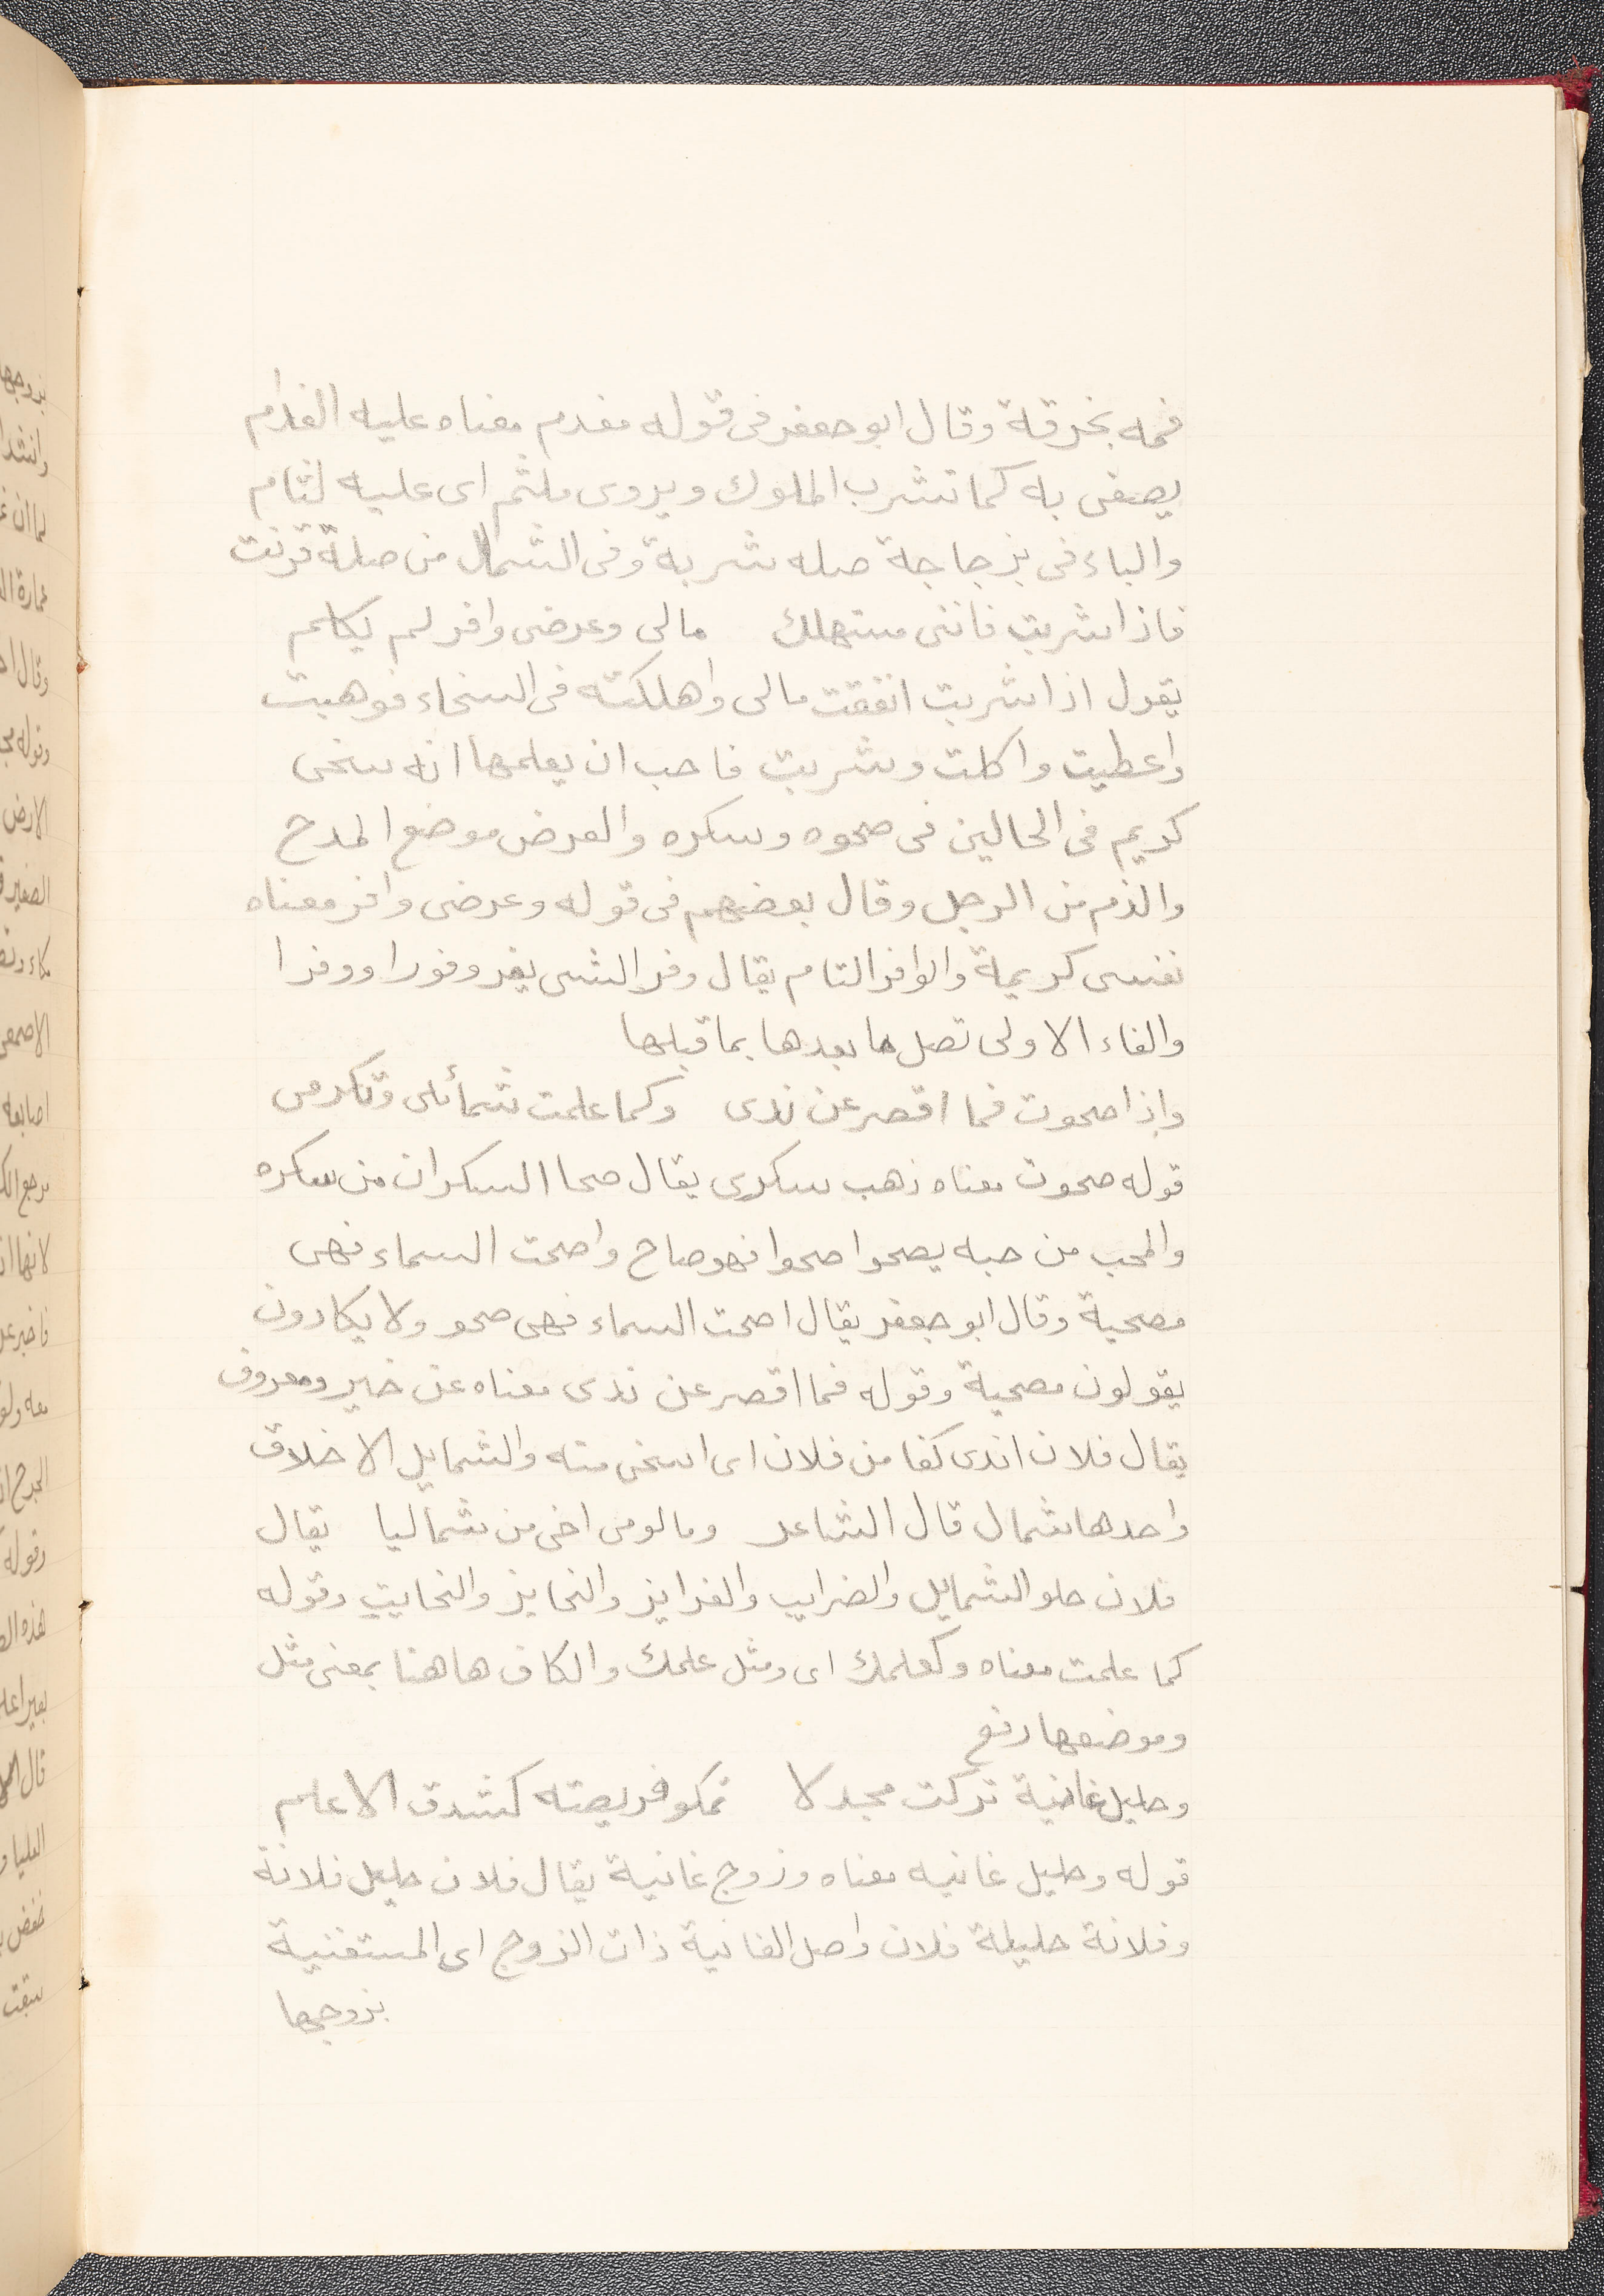 فمه بخرقة وقال ابو جعفر فى قوله مفدم معناه عليه الفدام
يصفى به كما تشرب الملوك ويروى ملثم اى عليه لثام
والباء فى بزجاجة صله شربة وفى الشمال من صلة قرنت
فاذا شربت فاننى مستهلك مالى وعرضى وافر لم يكلم
يقول اذا شربت انفقت مالى واهلكته فى السخاء فوهبت
واعطيت واكلت وشربت فاحب ان يعلمها انه سخى
كريم فى الحالين فى صحوه وسكره والعرض موضع المدح
والذم من الرجل وقال بعضهم فى قوله وعرضى وافر معناه
نفسى كريمة والوافر التام يقال وفر الشى يفر وفورا ووفرا
والفاء الاولى تصل ما بعدها بما قبلها
وإذا صحوت فما اقصر عن ندى وكما علمت شمائلى وتكرمى
قوله صحوت معناه ذهب سكرى يقال صحا السكران من سكره
والمحب من حبه يصحوا صحوا فهو صاح واصحت السماء فهى
مصحية وقال ابو جعفر يقال اصحت السماء فهى صحو ولا يكادون
يقولون مصحية وقوله فما اقصر عن ندى معناه عن خير ومعروف
يقال فلان اندى كفا من فلان اى اسخى منه والشمايل الاخلاق
واحدها شمال قال الشاعر ومالومى اخى من شماليا يقال
فلان حلو الشمايل والضرايب والغرايز والنحايز والنحايت وقوله
كما علمت معناه وكعلمك اى ومثل علمك والكاف هاهنا بمعنى مثل
وموضعها رفع
وحليل غانية تركت مجدلا تمكو فريصته كشدق الاعلم
قوله وحليل غانيه معناه وزوج غانية يقال فلان حليل فلانة
وفلانة حليلة فلان واصل الغانية ذات الزوج اى المستغنية
بزوجها